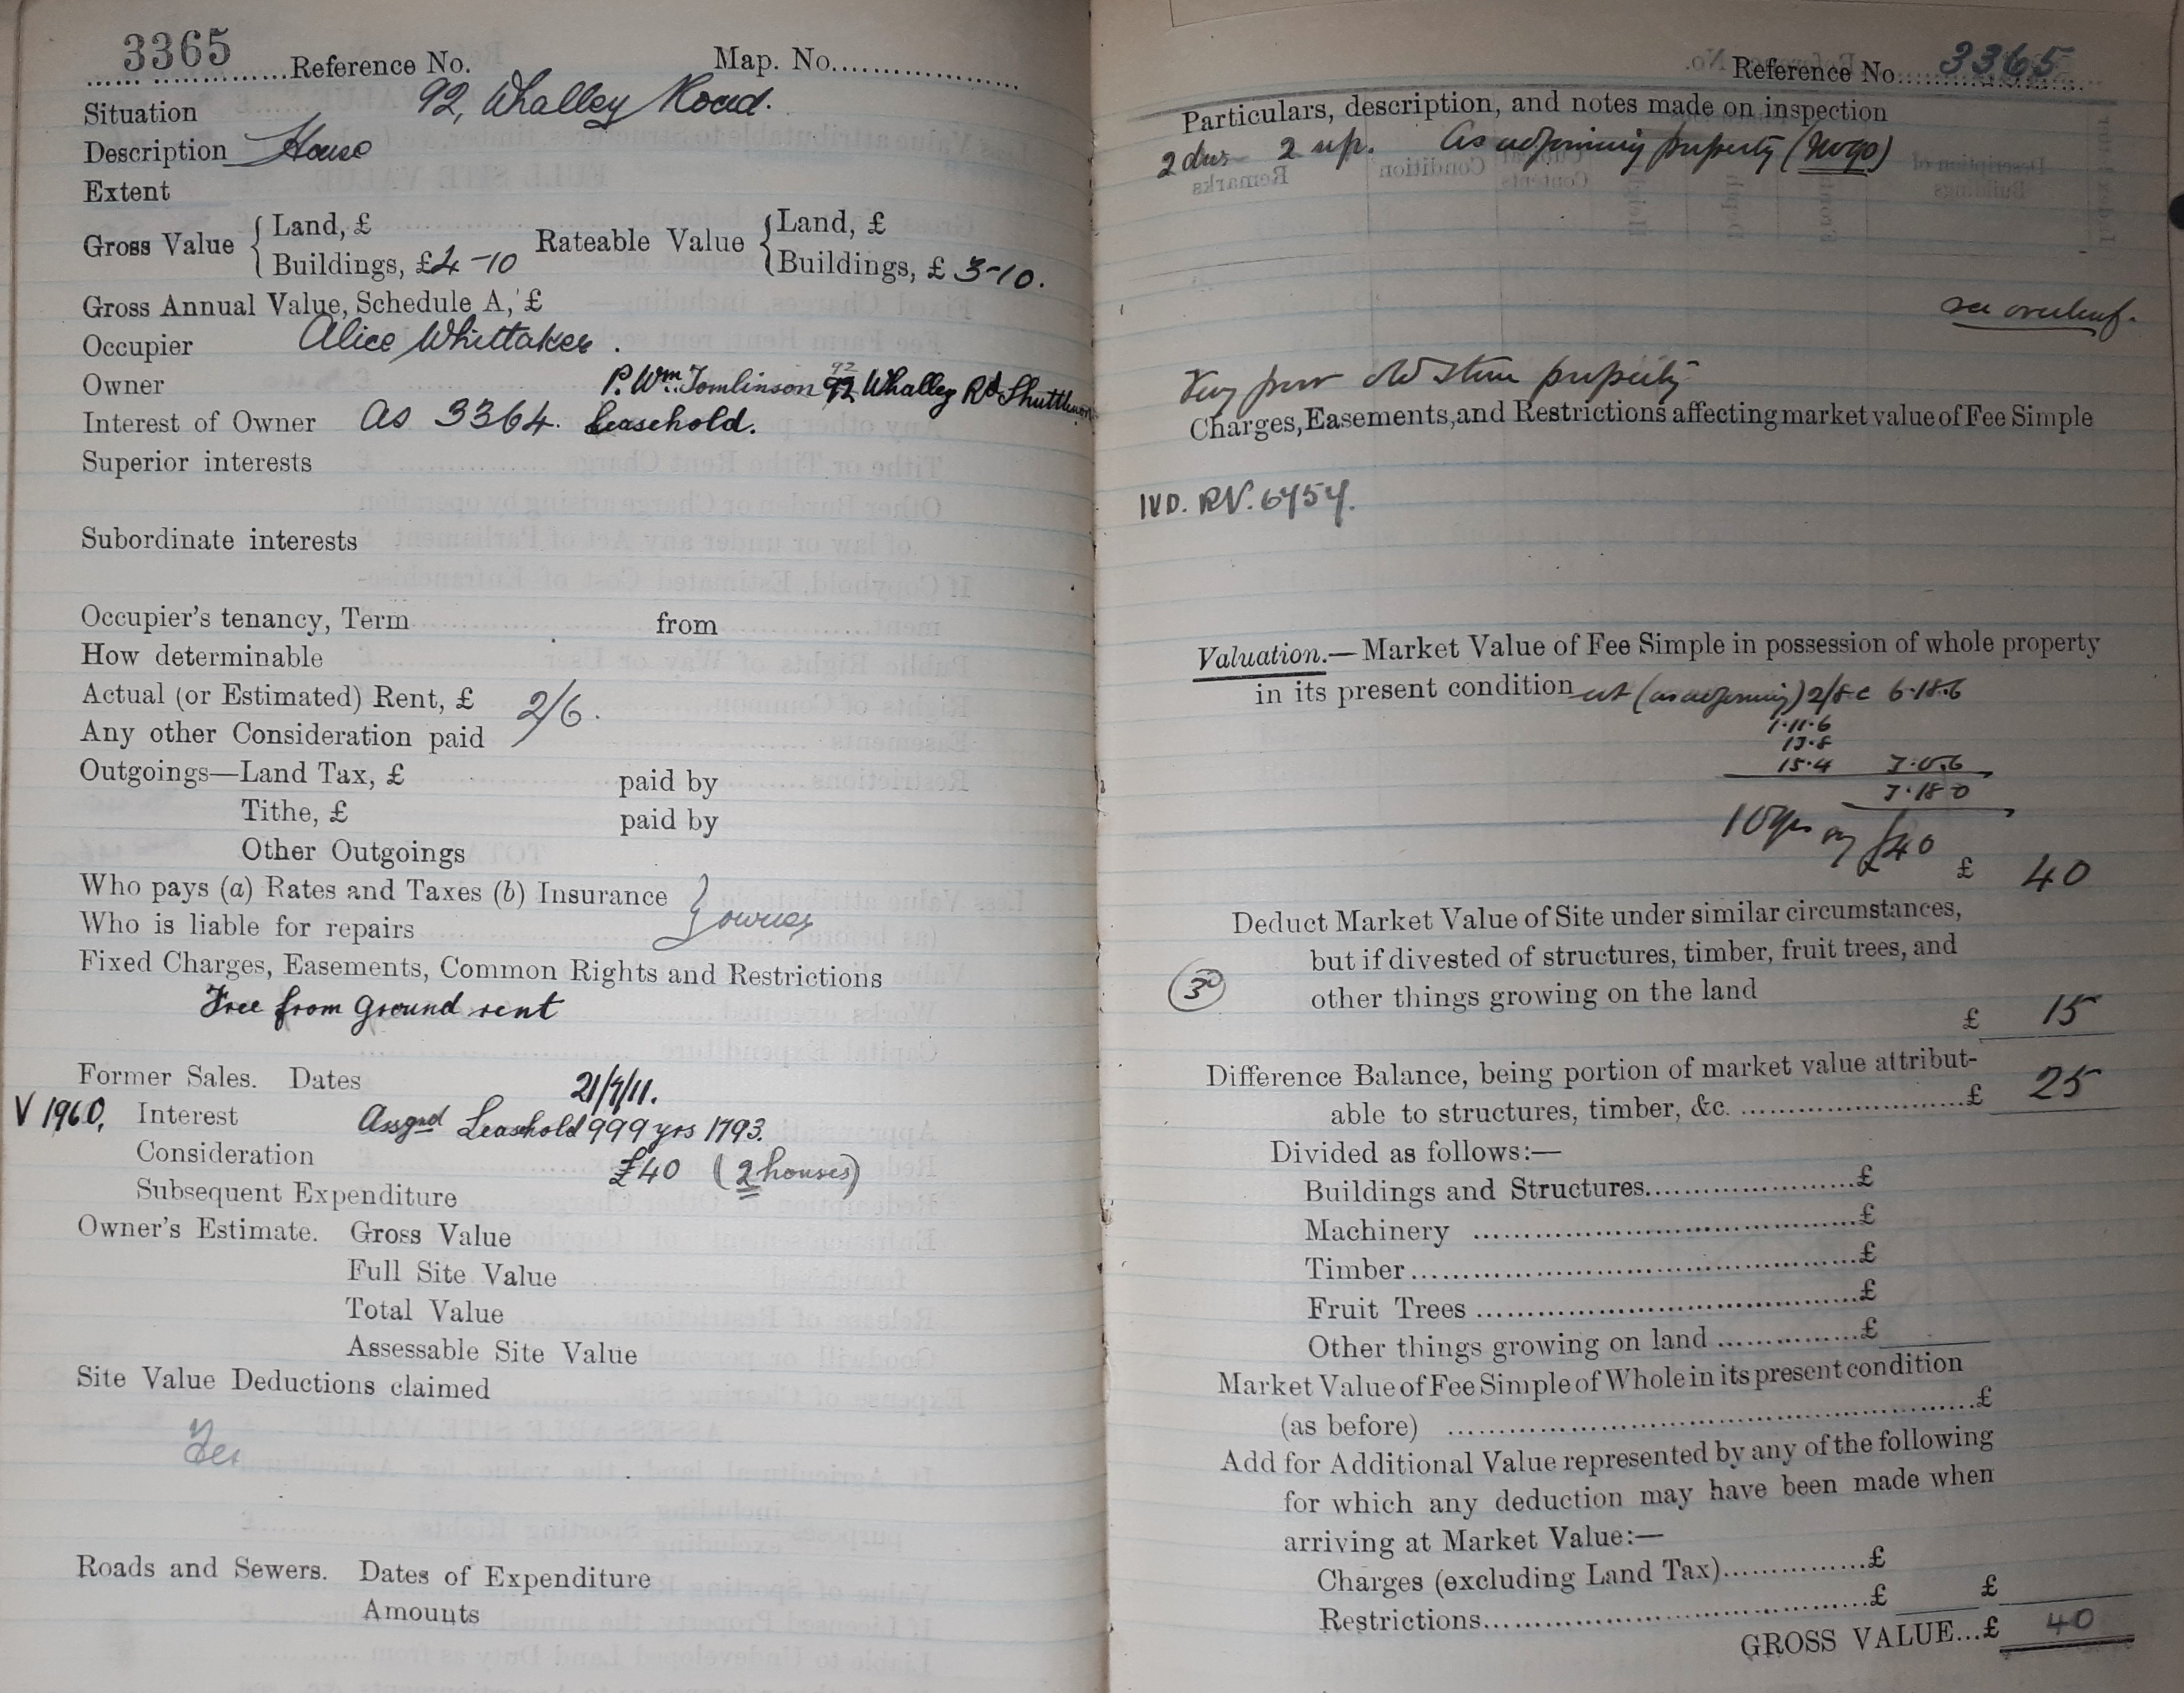 3365
Reference No. Map. No.
Situation 92, Whalley Road.
Description House
Extent
Gross Value { Land, £ Rateable Value { Land, £
Buildings, £4-10 Buildings, £ 3-10.
Gross Annual Value, Schedule A, £
Occupier Alice Whittaker.
Owner P. Wm Tomlinson 92 Whalley Rd Shuttleworth
Interest of Owner As 3364. Leasehold.
Superior interests
Subordinate interests
Occupier's tenancy, Term from
How determinable
Actual (or Estimated) Rent, £ 2/6.
Any other Consideration paid
Outgoings—Land Tax, £ paid by
Tithe, £ paid by
Other Outgoings
Who pays (a) Rates and Taxes (b) Insurance } owner
Who is liable for repairs
Fixed Charges, Easements, Common Rights and Restrictions
Free from Ground rent
Former Sales. Dates 21/7/11.
V 1960, Interest Assgnd Leasehold 999 yrs 1793.
Consideration £40 (2 houses)
Subsequent Expenditure
Owner's Estimate. Gross Value
Full Site Value
Total Value
Assessable Site Value
Site Value Deductions claimed
Yes
Roads and Sewers. Dates of Expenditure
Amounts
Reference No. 3365
Particulars, description, and notes made on inspection
2 dns 2 up. As adjoining property (No 90)
see overleaf.
Very poor old stone property
Charges, Easements, and Restrictions affecting market value of Fee Simple
IVD. RV. 6454.
Valuation.—Market Value of Fee Simple in possession of whole property
in its present condition (as adjoining) 2/8 6.18.6
1.11.6
13.8
15.4 3.0.6
3.18.0
10 yrs £40
£ 40
Deduct Market Value of Site under similar circumstances,
but if divested of structures, timber, fruit trees, and
other things growing on the land
£ 15
Difference Balance, being portion of market value attribut-
able to structures, timber, &c. £ 25
Divided as follows:—
Buildings and Structures £
Machinery £
Timber £
Fruit Trees £
Other things growing on land £
Market Value of Fee Simple of Whole in its present condition
(as before) £
Add for Additional Value represented by any of the following
for which any deduction may have been made when
arriving at Market Value:—
Charges (excluding Land Tax) £
Restrictions £ £
GROSS VALUE...£ 40